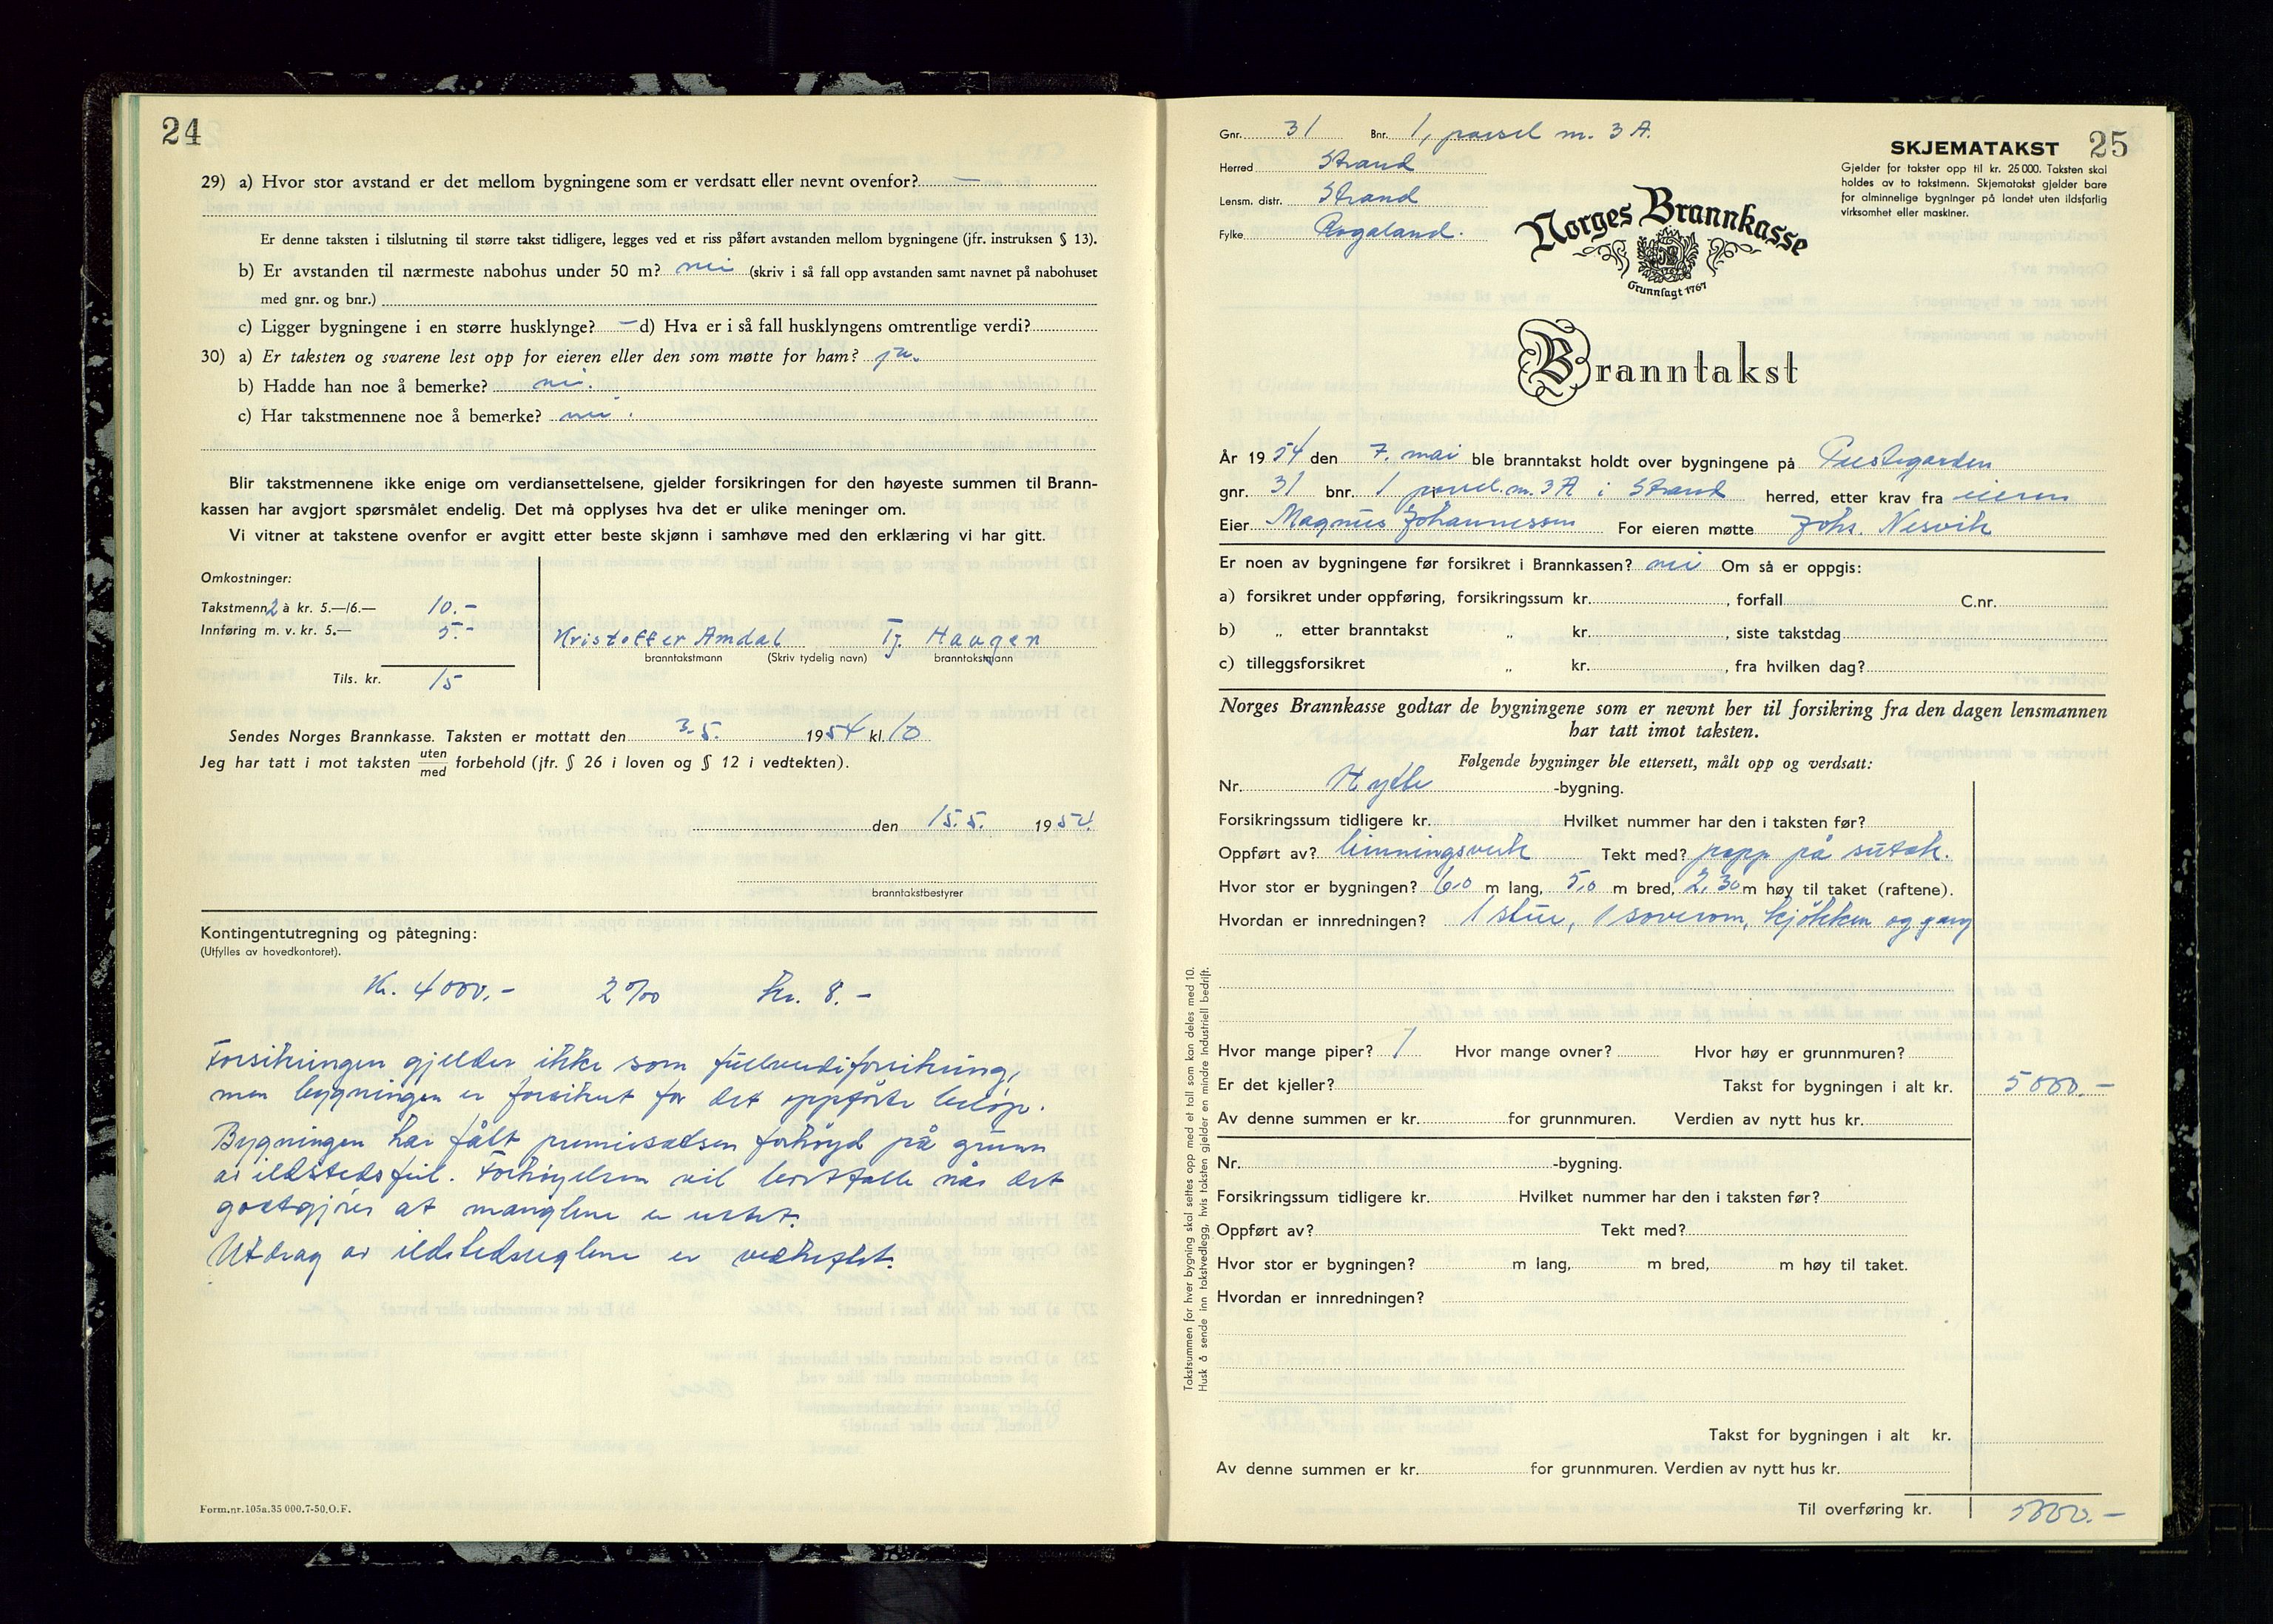 24
29) a) Hvor stor avstand er det mellom bygningene som er verdsatt eller nevnt ovenfor? —
Er denne taksten i tilslutning til større takst tidligere, legges ved et riss påført avstanden mellom bygningene (jfr. instruksen § 13).
b) Er avstanden til nærmeste nabohus under 50 m? nei (skriv i så fall opp avstanden samt navnet på nabohuset
med gnr. og bnr.)
c) Ligger bygningene i en større husklynge? — d) Hva er i så fall husklyngens omtrentlige verdi?
30) a) Er taksten og svarene lest opp for eieren eller den som møtte for ham? ja.
b) Hadde han noe å bemerke? nei.
c) Har takstmennene noe å bemerke? nei.
Blir takstmennene ikke enige om verdiansettelsene, gjelder forsikringen for den høyeste summen til Brann-
kassen har avgjort spørsmålet endelig. Det må opplyses hva det er ulike meninger om.
Vi vitner at takstene ovenfor er avgitt etter beste skjønn i samhøve med den erklæring vi har gitt.
Omkostninger:
Takstmenn 2 à kr. 5.—/6.— 10.-
Innføring m. v. kr. 5.— 5.-
Kristoffer Amdal Tj. Haugen
branntakstmann (Skriv tydelig navn) branntakstmann
Tils. kr. 15
Sendes Norges Brannkasse. Taksten er mottatt den 3.5. 1954 kl. 10
Jeg har tatt i mot taksten uten/med forbehold (jfr. § 26 i loven og § 12 i vedtekten).
den 15.5. 1954
branntakstbestyrer
Kontingentutregning og påtegning:
(Utfylles av hovedkontoret).
Kr. 4000.- 2 ‰ kr. 8.-
Forsikringen gjelder ikke som fullverdiforsikring,
men bygningen er forsikret for det oppførte beløp.
Bygningen har fått premiesatsen forhøyd på grunn
av ildstedsfeil. Forhøyelsen vil bortfalle når det
godtgjøres at manglene er rettet.
Utdrag av ildstedsreglene er vedheftet.
Form.nr.105a.35 000.7-50.O.F.
25
Gnr. 31 Bnr. 1, parsel m. 3 A.
Herred Strand
Lensm. distr. Strand
Fylke Rogaland.
SKJEMATAKST
Gjelder for takster opp til kr. 25 000. Taksten skal
holdes av to takstmenn. Skjematakst gjelder bare
for alminnelige bygninger på landet uten ildsfarlig
virksomhet eller maskiner.
Norges Brannkasse
Grunnlagt 1767
Branntakst
År 1954 den 7. mai ble branntakst holdt over bygningene på Prestegarden
gnr. 31 bnr. 1 parsel. m. 3 A i Strand herred, etter krav fra eieren
Eier Magnus Johannessen For eieren møtte Johs. Nesvik
Er noen av bygningene før forsikret i Brannkassen? nei Om så er oppgis:
a) forsikret under oppføring, forsikringssum kr. , forfall C.nr.
b) „ etter branntakst „ kr. , siste takstdag
c) tilleggsforsikret „ kr. , fra hvilken dag?
Norges Brannkasse godtar de bygningene som er nevnt her til forsikring fra den dagen lensmannen
har tatt imot taksten.
Følgende bygninger ble ettersett, målt opp og verdsatt:
Nr. Hytte -bygning.
Forsikringssum tidligere kr. Hvilket nummer har den i taksten før?
Oppført av? binningsverk Tekt med? papp på sutak.
Hvor stor er bygningen? 6.0 m lang, 5.0 m bred, 2.30 m høy til taket (raftene).
Hvordan er innredningen? 1 stue, 1 soverom, kjøkken og gang
Hvor mange piper? 1 Hvor mange ovner? Hvor høy er grunnmuren?
Er det kjeller? Takst for bygningen i alt kr. 5000.-
Av denne summen er kr. for grunnmuren. Verdien av nytt hus kr.
Nr. -bygning.
Forsikringssum tidligere kr. Hvilket nummer har den i taksten før?
Oppført av? Tekt med?
Hvor stor er bygningen? m lang, m bred, m høy til taket.
Hvordan er innredningen?
Takst for bygningen i alt kr.
Av denne summen er kr. for grunnmuren. Verdien av nytt hus kr.
Til overføring kr. 5000.-
Takstsummen for hver bygning skal settes opp med et tall som kan deles med 10.
Husk å sende inn takstvedlegg, hvis taksten gjelder en mindre industriell bedrift.